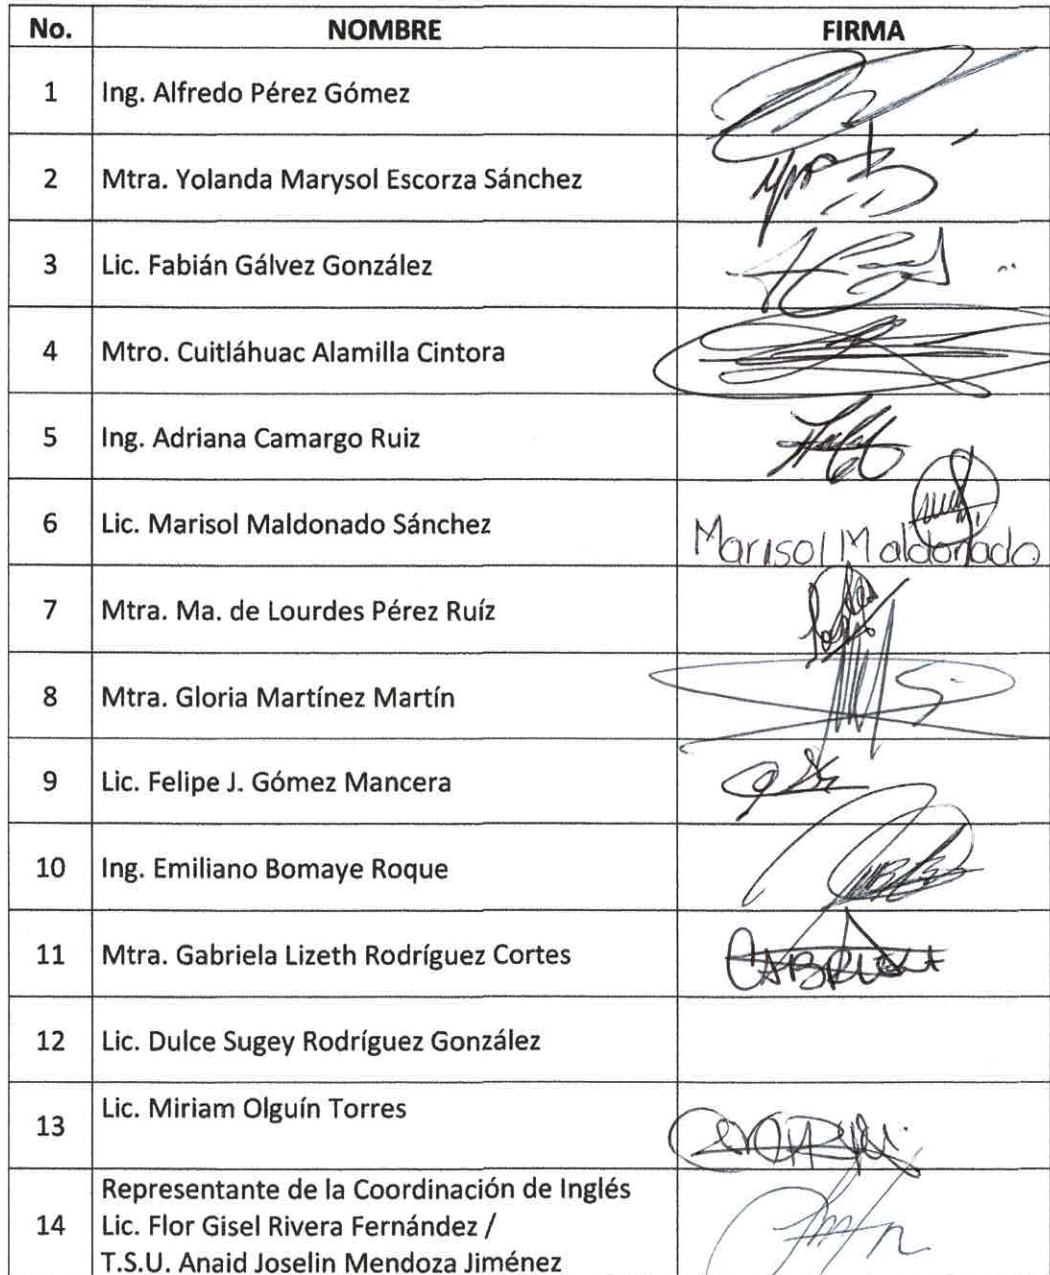 No. NOMBRE FIRMA
1 Ing. Alfredo Pérez Gómez
2 Mtra. Yolanda Marysol Escorza Sánchez
3 Lic. Fabián Gálvez González
4 Mtro. Cuitláhuac Alamilla Cintora
5 Ing. Adriana Camargo Ruiz
6 Lic. Marisol Maldonado Sánchez Marisol Maldonado
7 Mtra. Ma. de Lourdes Pérez Ruíz
8 Mtra. Gloria Martínez Martín
9 Lic. Felipe J. Gómez Mancera
10 Ing. Emiliano Bomaye Roque
11 Mtra. Gabriela Lizeth Rodríguez Cortes
12 Lic. Dulce Sugey Rodríguez González
13 Lic. Miriam Olguín Torres
Representante de la Coordinación de Inglés
14 Lic. Flor Gisel Rivera Fernández /
T.S.U. Anaid Joselin Mendoza Jiménez